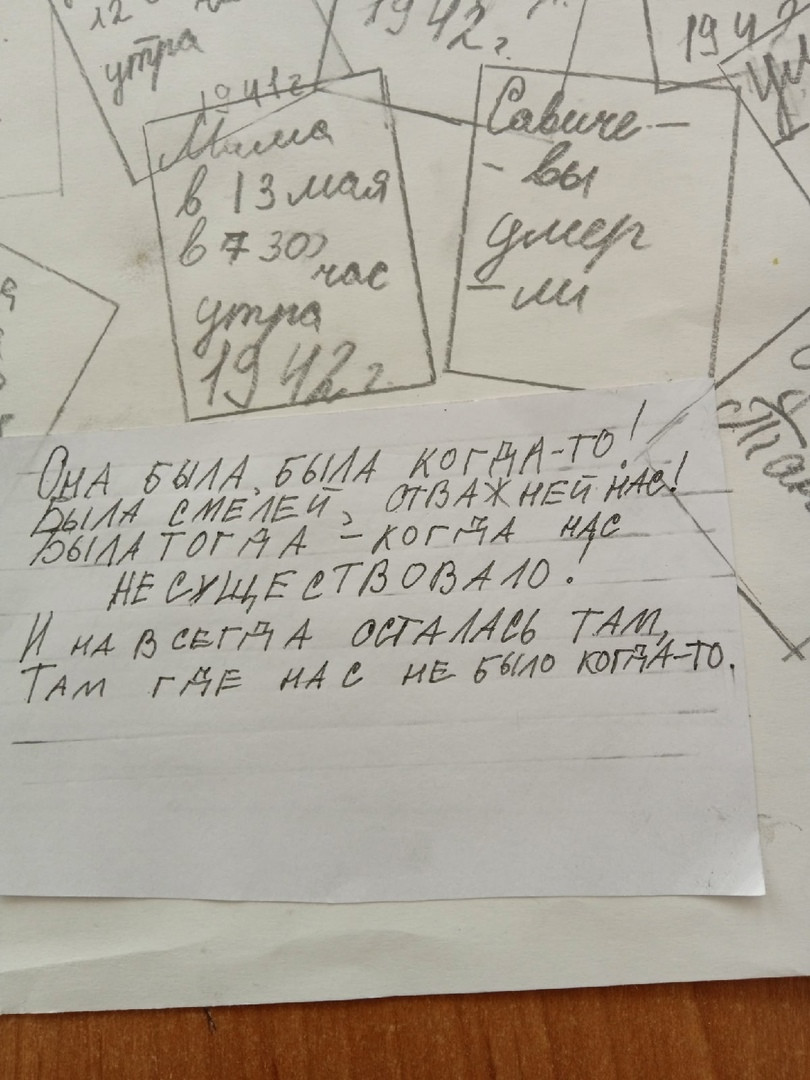 12
утра
1942 г.
1942
1941г
Мама
в 13 мая
в 7 30
час
утра
1942 г.
Савиче-
- вы
умер
- ли
Она была, была когда-то!
Была смелей, отважней нас!
Была тогда - когда нас
не существовало!
И навсегда осталась там,
Там где нас не было когда-то.